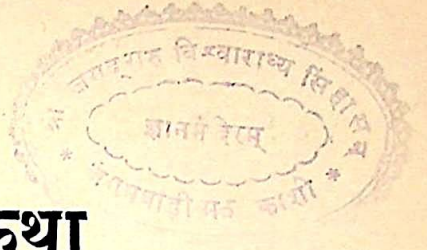 श्री जगद्गुरु विश्वाराध्य सिंहासन
ज्ञानमंदिरम्
जंगमवाड़ी मठ काशी
कथा